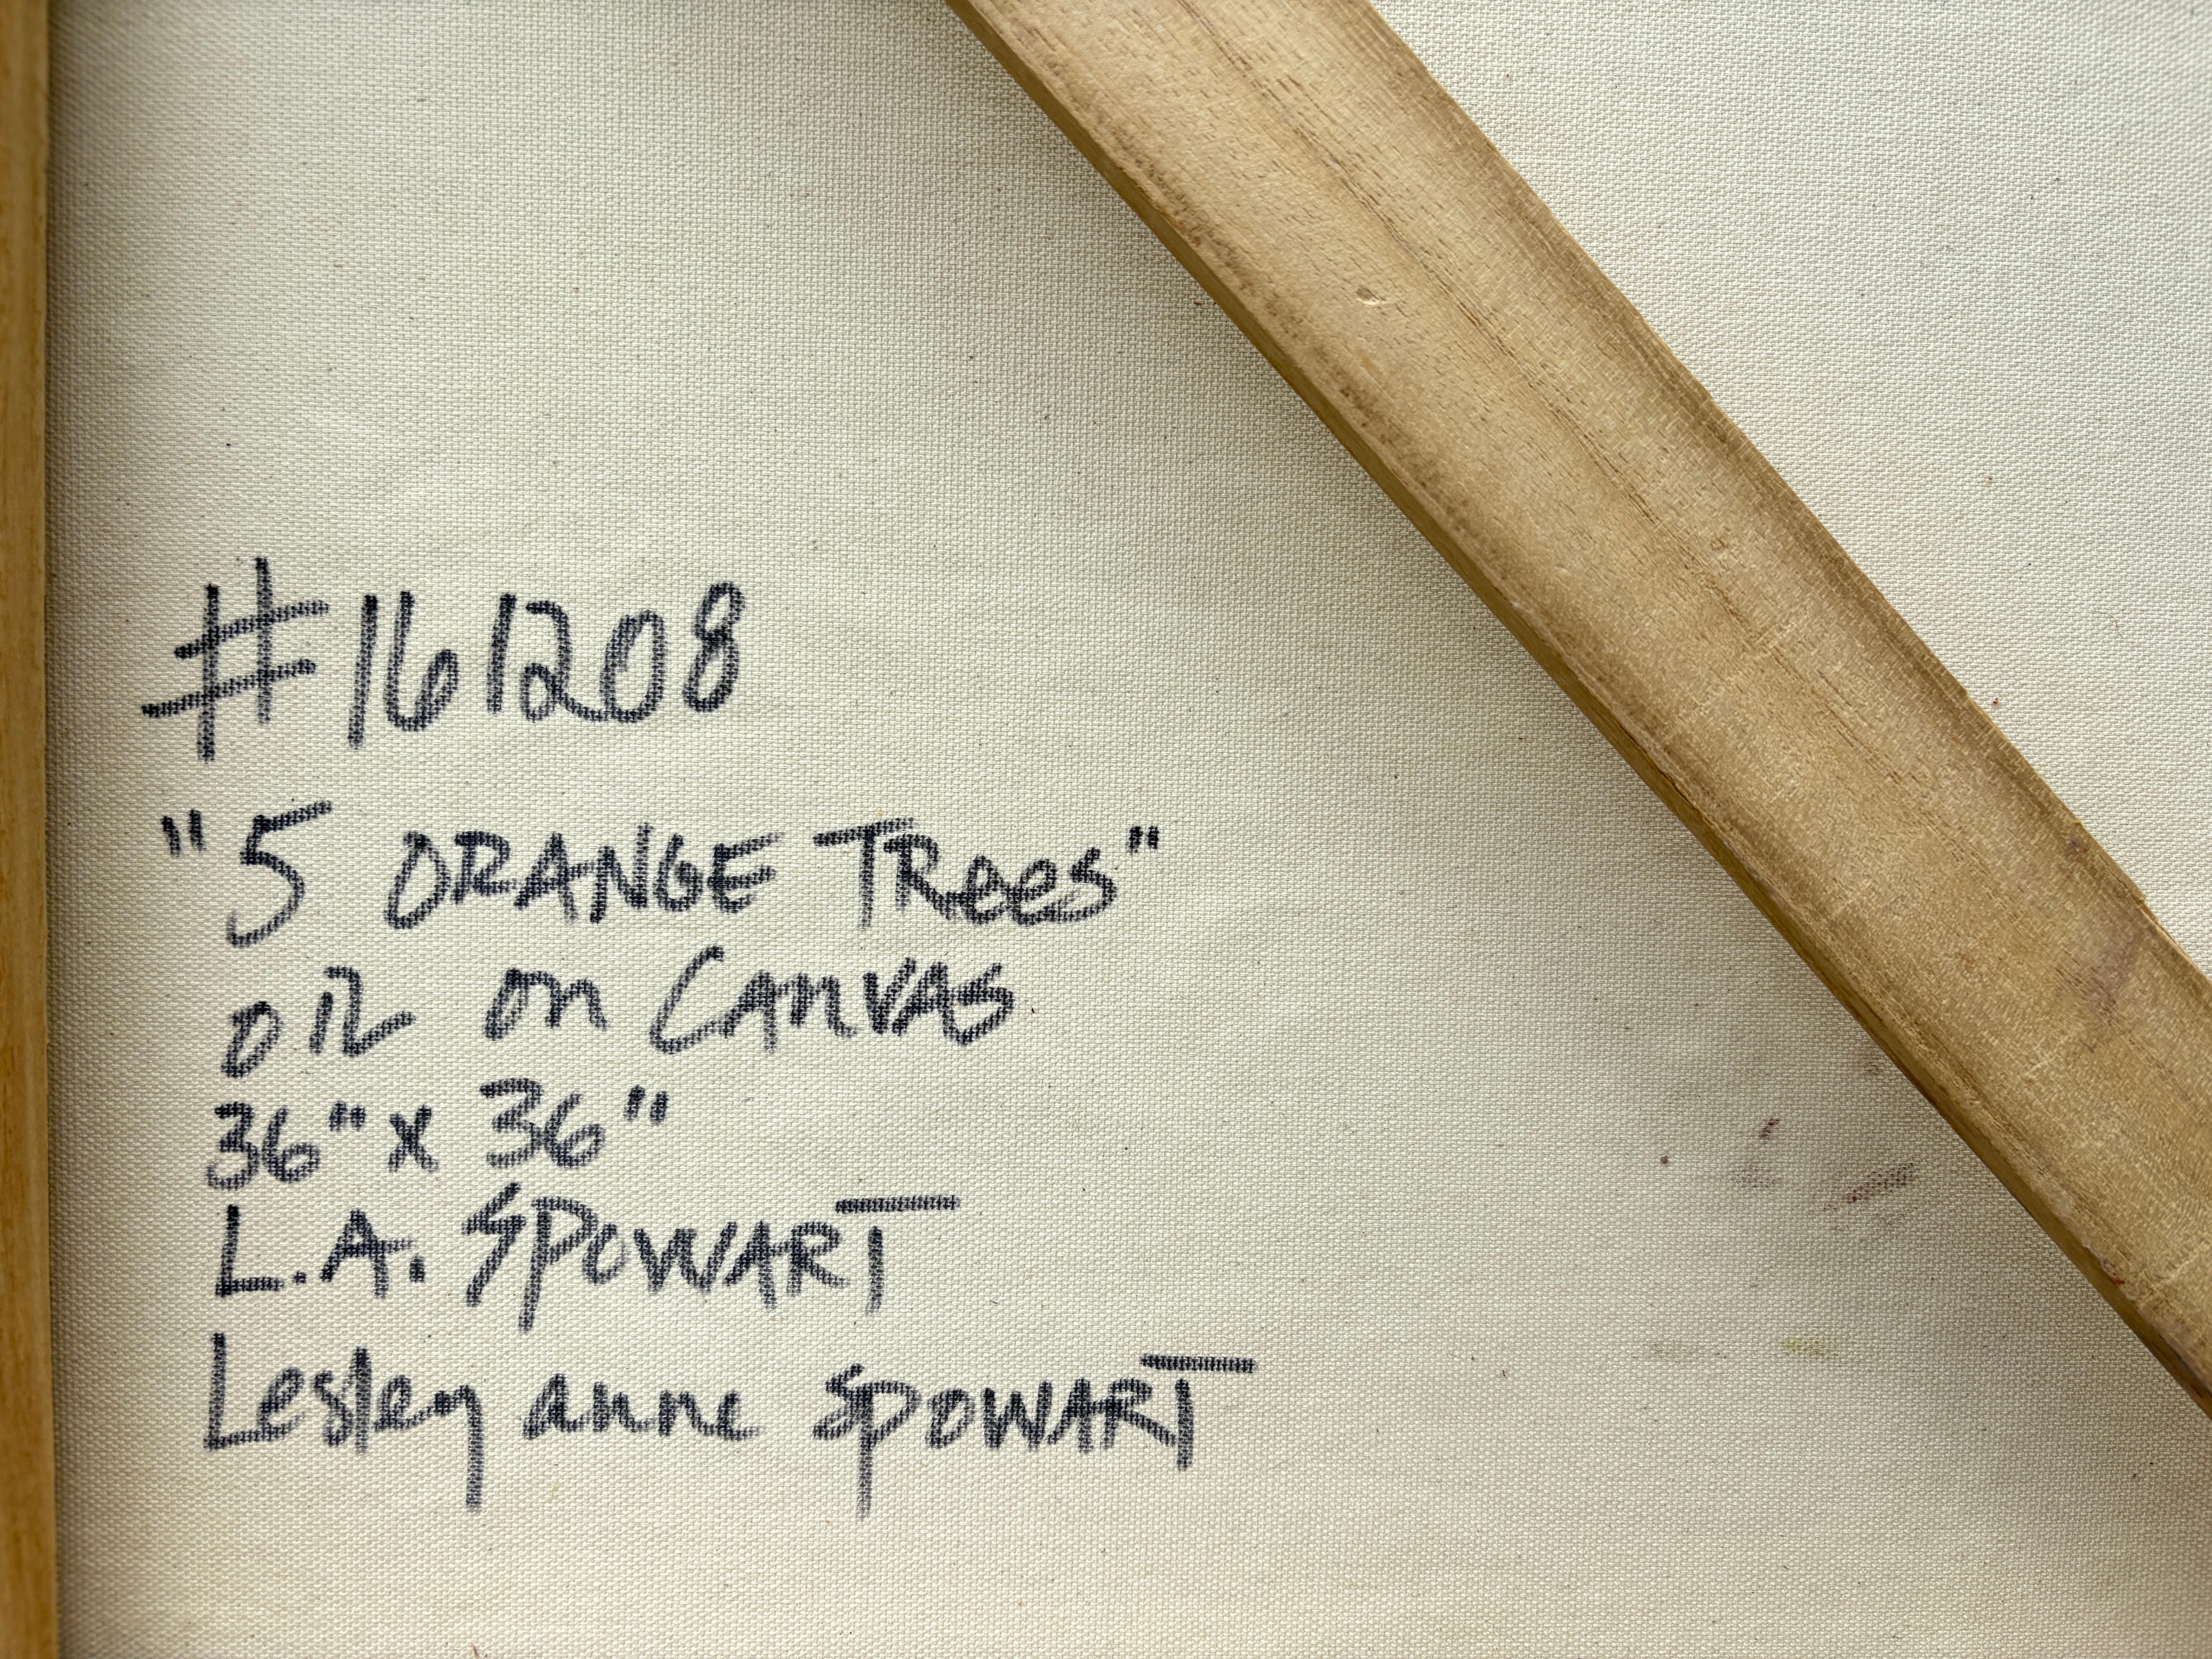 #161208
"5 ORANGE TRees"
OIL on CANVAS
36" x 36"
L.A. SPOWART
Lesley anne SPOWART